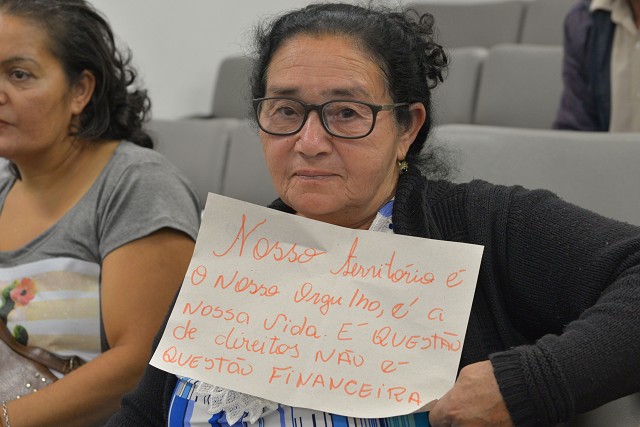 Nosso território é
o nosso orgulho, é a
nossa vida. É QUESTÃO
de direitos NÃO é
QUESTÃO FINANCEIRA